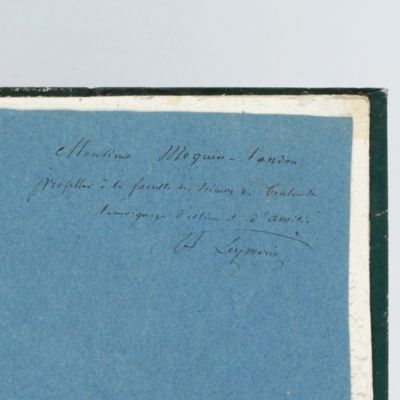 Monsieur Moquin-Tandon
professeur à la faculté des sciences de Toulouse
temoignage d'estime et d'amitié
A Leymerie